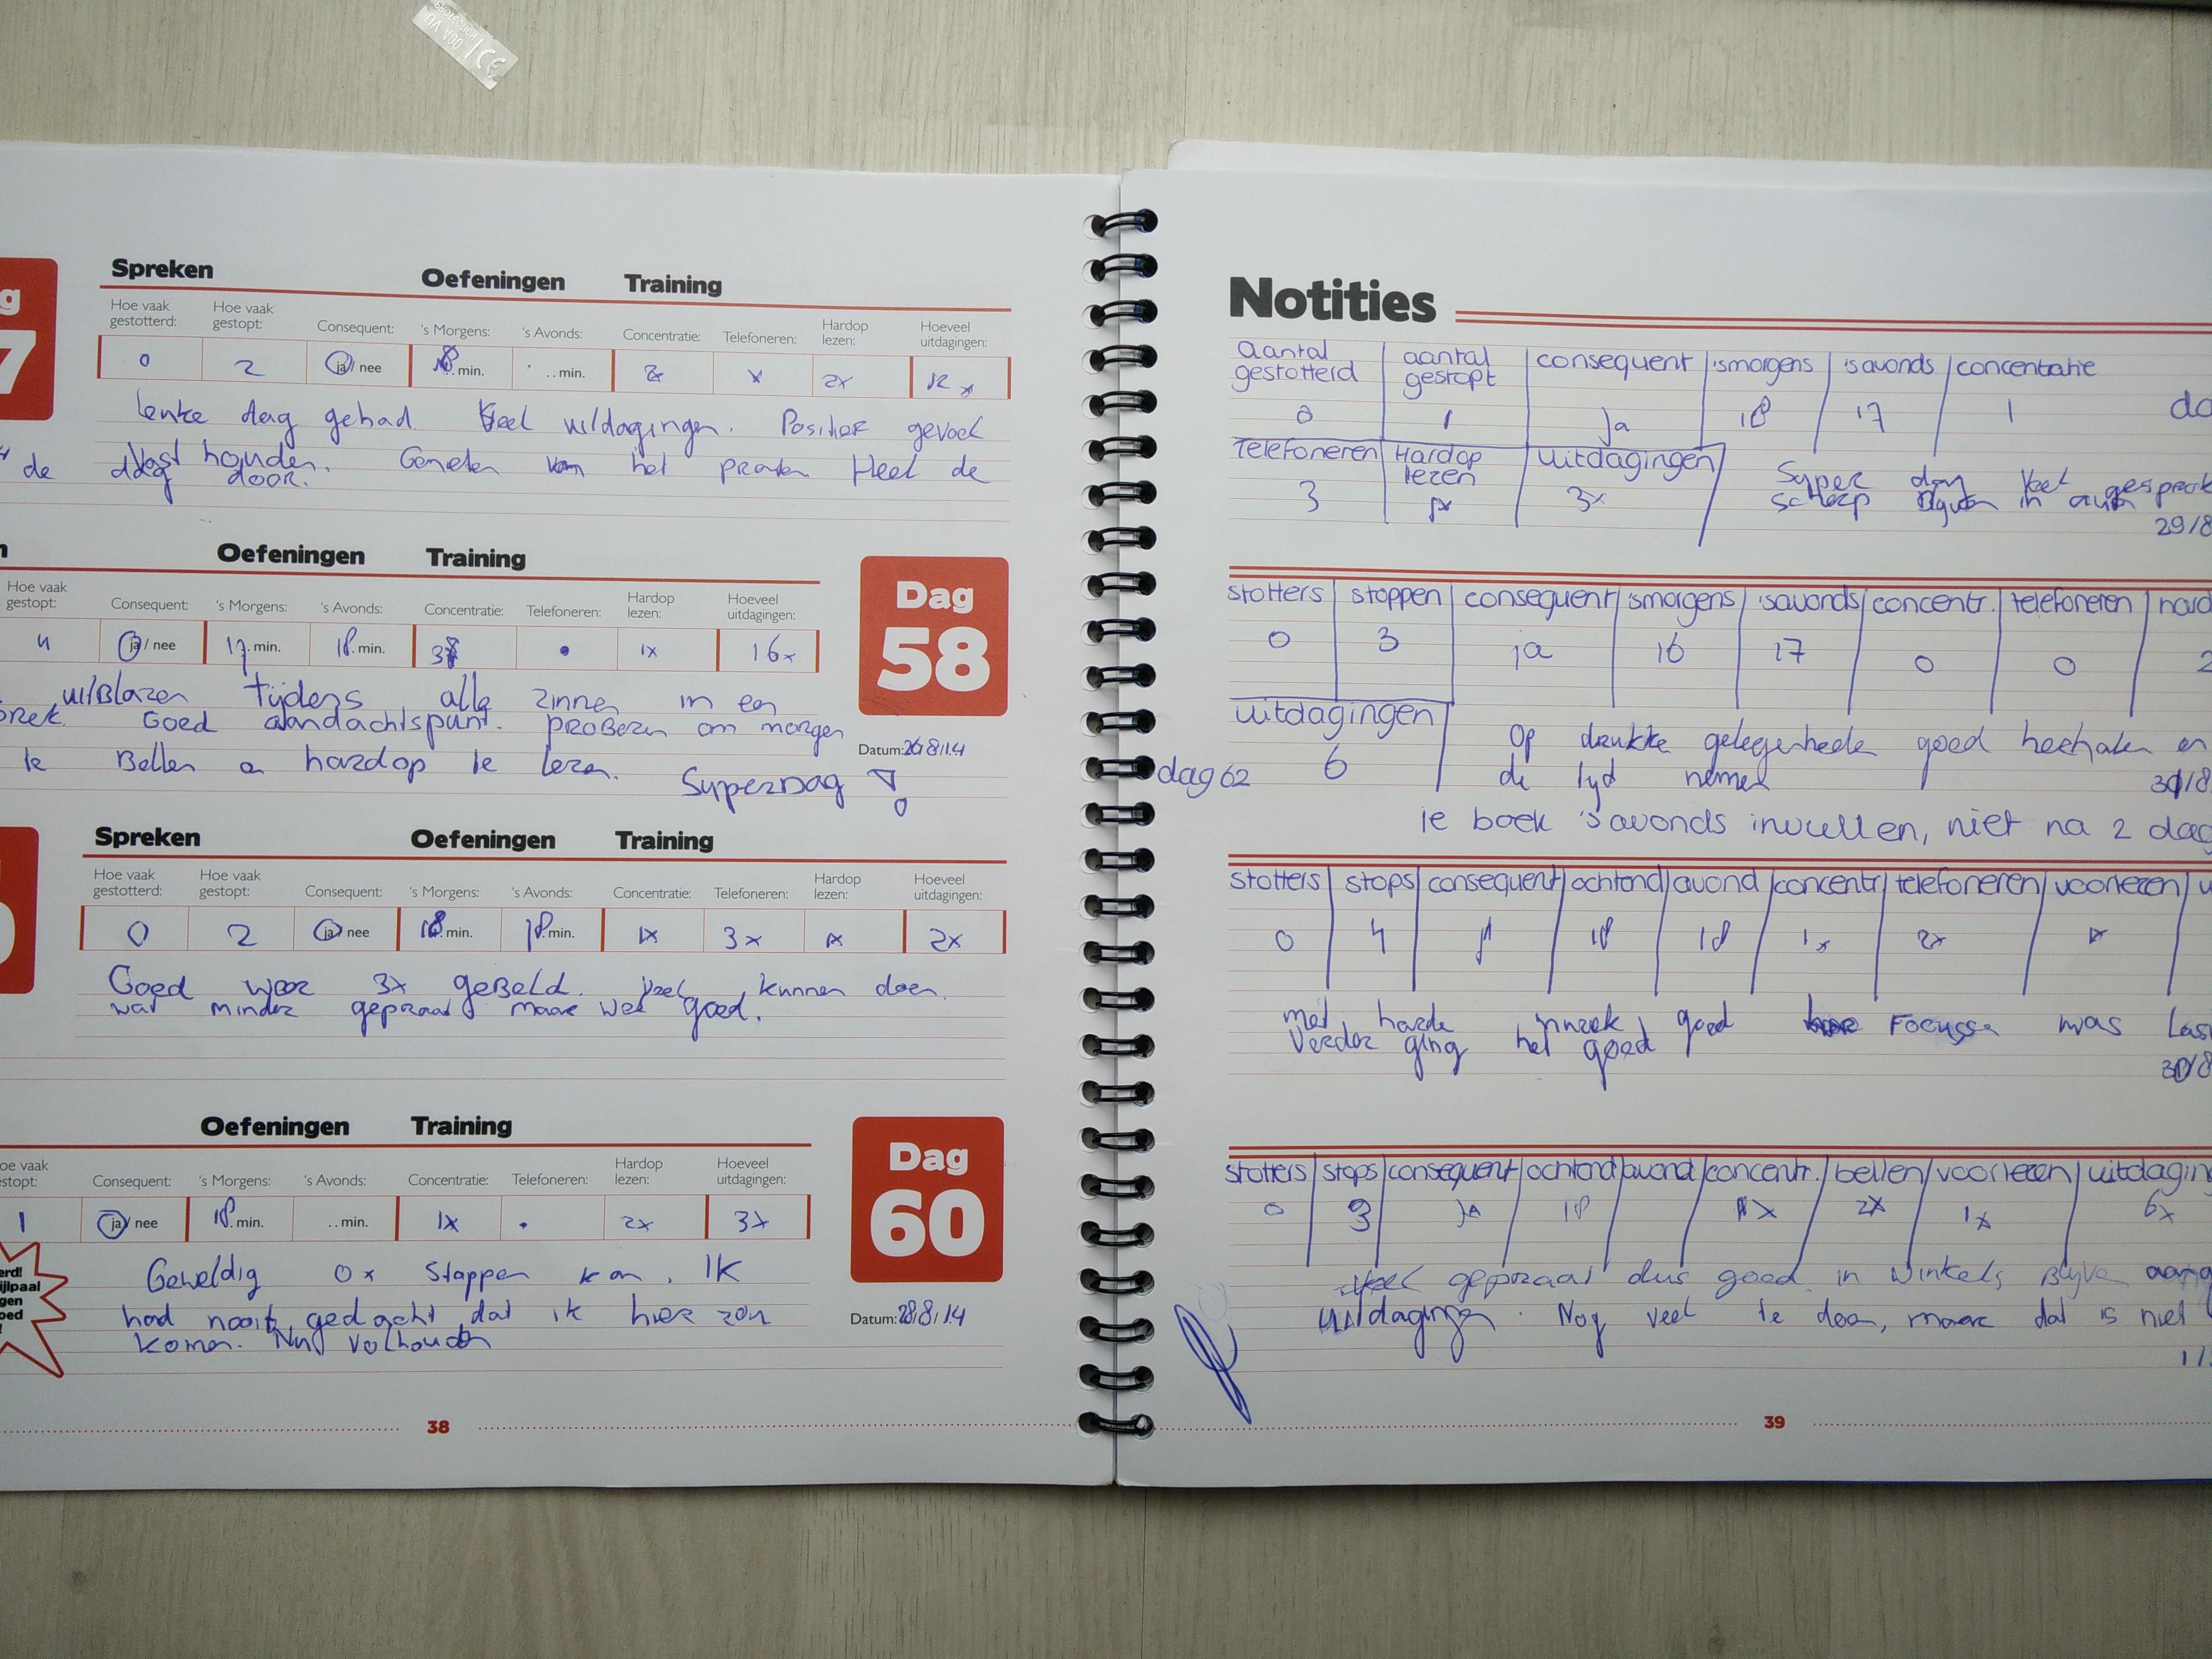 CE
Spreken Oefeningen Training
Hoe vaak gestotterd: Hoe vaak gestopt: Consequent: 's Morgens: 's Avonds: Concentratie: Telefoneren: Hardop lezen: Hoeveel uitdagingen:
0 2 ja/nee 18 min. ..min. 2x 12x
g
7
leuke dag gehad. Veel uitdagingen. Positief gevoel
vast houden. Genieten van het praten Heel de
de dag door.
Oefeningen Training
Hoe vaak gestopt: Consequent: 's Morgens: 's Avonds: Concentratie: Telefoneren: Hardop lezen: Hoeveel uitdagingen:
4 ja/nee 17 min. 18 min. • 1x 16x
Dag
58
Datum: 26/8/14
uitBlazen tijdens alle zinnen in een
Goed aandachtspunt. PROBeren om morgen
te Bellen en hardop te lezen.
SuperDag !
Spreken Oefeningen Training
Hoe vaak gestotterd: Hoe vaak gestopt: Consequent: 's Morgens: 's Avonds: Concentratie: Telefoneren: Hardop lezen: Hoeveel uitdagingen:
0 2 ja/nee 18 min. 18 min. 1x 3x 1x 2x
Goed weer 3x geBeld. Veel kunnen doen.
wat minder gepraat maar wel goed.
Oefeningen Training
oe vaak stopt: Consequent: 's Morgens: 's Avonds: Concentratie: Telefoneren: Hardop lezen: Hoeveel uitdagingen:
1 ja/nee 18 min. ..min. 1x • 2x 3x
Dag
60
Datum: 28/8/14
erd!
ijlpaal
gen
oed
Geweldig 0x Stoppen kan. IK
had nooit gedacht dat ik hier zou
komen. Nu volhouden
38
Notities
aantal gestotterd aantal gestopt consequent 'smorgens 'savonds concentratie
0 1 ja 18 17 1
Telefoneren Hardop lezen uitdagingen
3 1x 3x
Super dag Veel gesprek
scherp in
29/8
stotters stoppen consequent 'smorgens 'savonds concentr. telefoneren hard
0 3 ja 16 17 0 0 2
uitdagingen
6
dag 62
Op drukke gelegenheden goed en
de tijd nemen
30/8
je boek 's avonds invullen, niet na 2 dag
stotters stops consequent ochtend avond concentr telefoneren voorlezen u
0 4 18 18 1x 2x 1x
met harde goed Focussen was Las
Verder ging het goed
30/8
stotters stops consequent ochtend avond concentr. bellen voorlezen uitdaging
0 3 ja 18 1x 2x 1x 6x
Veel gepraat dus goed in winkels Blijven
uitdagingen. Nog veel te doen, maar dat is niet
1/
39